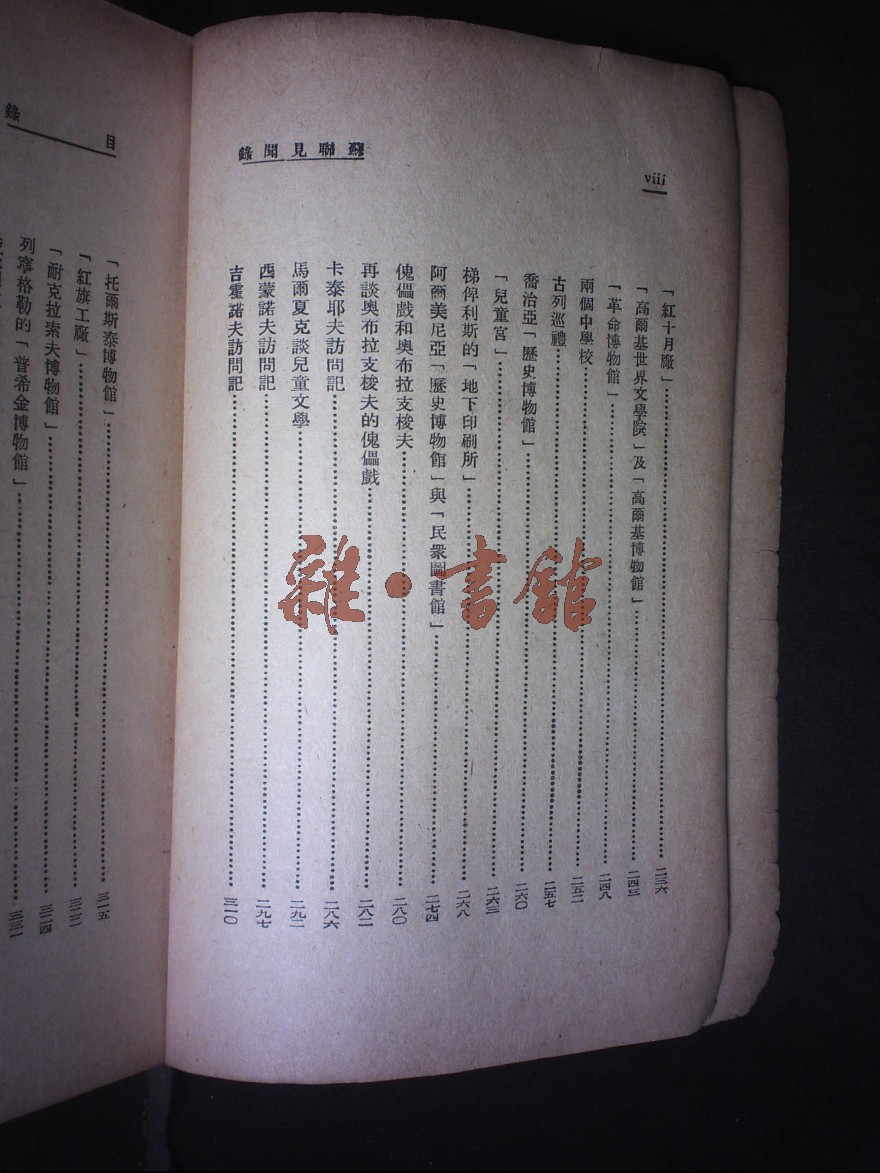 蘇聯見聞錄
viii
「紅十月廠」……二三六
「高爾基世界文學院」及「高爾基博物館」……二四三
「革命博物館」……二四八
兩個中學校……二五二
古列巡禮……二五七
喬治亞「歷史博物館」……二六〇
「兒童宮」……二六三
梯俾利斯的「地下印刷所」……二六八
阿爾美尼亞「歷史博物館」與「民衆圖書館」……二七四
傀儡戲和奧布拉支梭夫……二八〇
再談奧布拉支梭夫的傀儡戲……二八二
卡泰耶夫訪問記……二八六
馬爾夏克談兒童文學……二九二
西蒙諾夫訪問記……二九七
吉霍諾夫訪問記……三一〇
目錄
「托爾斯泰博物館」……三一五
「紅旗工廠」……三二二
「耐克拉索夫博物館」……三二四
列寧格勒的「普希金博物館」……三三一
雜·書館